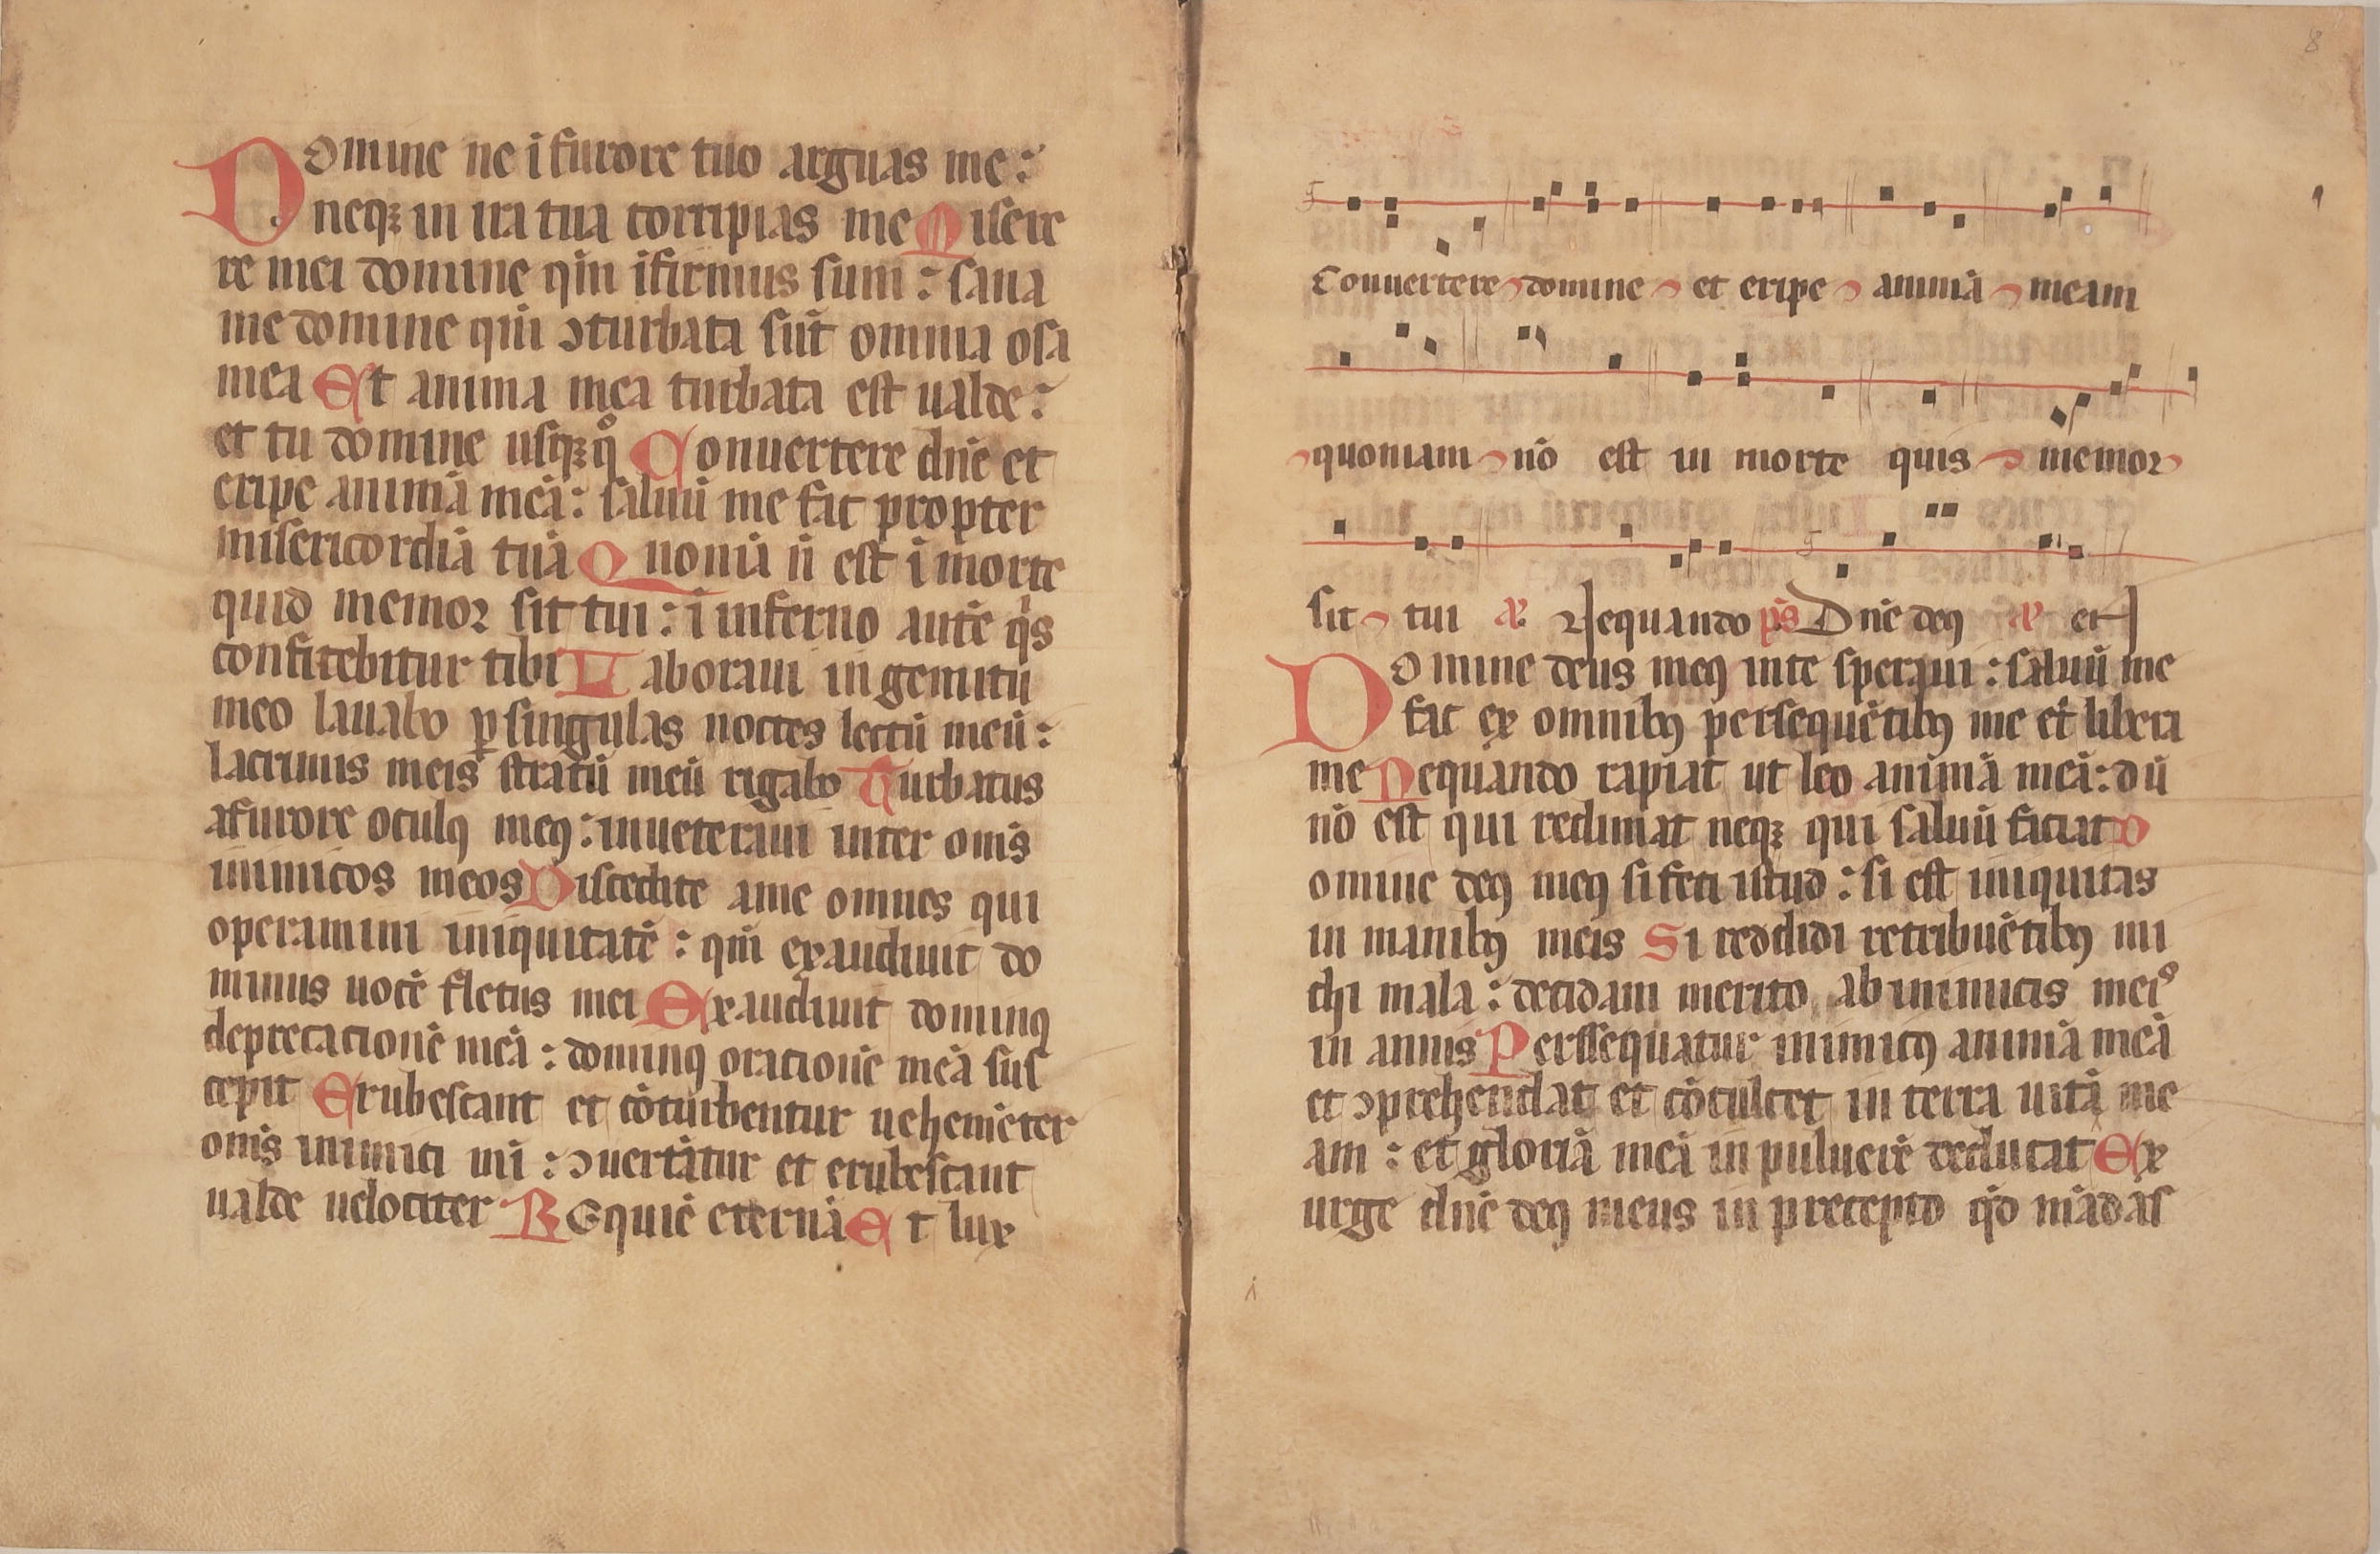 Domine ne ī furore tuo arguas me:
neqꝫ in ira tua corripias me Misere
re mei domine qm̄ īfirmus sum: sana
me domine qm̄ ↄturbata sūt omnia osa
mea Et anima mea turbata est ualde:
et tu domine usqꝫqͦ Conuertere dn̄e et
eripe animā meā: saluū me fac propter
misericordiā tuā Quoniā n̄ est ī morte
quid memoꝛ sit tui: ī inferno autē qͥs
confitebitur tibi Laboraui in gemitu
meo lauabo ꝑ singulas noctes lectū meū:
lacrimis meis stratū meū rigabo Turbatus
a furore oculꝰ meꝰ: inueteraui inter om̄s
inimicos meos Discedite a me omnes qui
operamini iniquitatē: qm̄ exaudiuit do
minus uocē fletus mei Exaudiuit dominꝰ
deprecacionē meā: dominꝰ orationē meā sus
cepit Erubescant et cōturbentur uehemēter
om̄s inimici mi: ↄuertātur et erubescant
ualde uelociter REquiē eternā Et lux
8
Conuertere domine et eripe animā meam
quoniam nō est in morte quis memoꝛ
sit tui Nequando ps̄ Dn̄e deꝰ et
Domine deus meꝰ in te speraui: saluū me
fac ex omnibꝰ persequētibꝰ me et libera
me Nequando rapiat ut leo animā meā: dū
nō est qui redimat neqꝫ qui saluū faciat D
omine deꝰ meꝰ si feci istud: si est iniquitas
in manibꝰ meis Si reddidi retribuētibꝰ mi
chi mala: decidam merito ab inimicis meis
in annis Perssequatur inimicꝰ animā meā
et ↄprehendat et cōculcet in terra uitā me
am: et gloriā meā in puluerē deducat Ex
urge dn̄e deꝰ meus in precepto qd̄ mādas